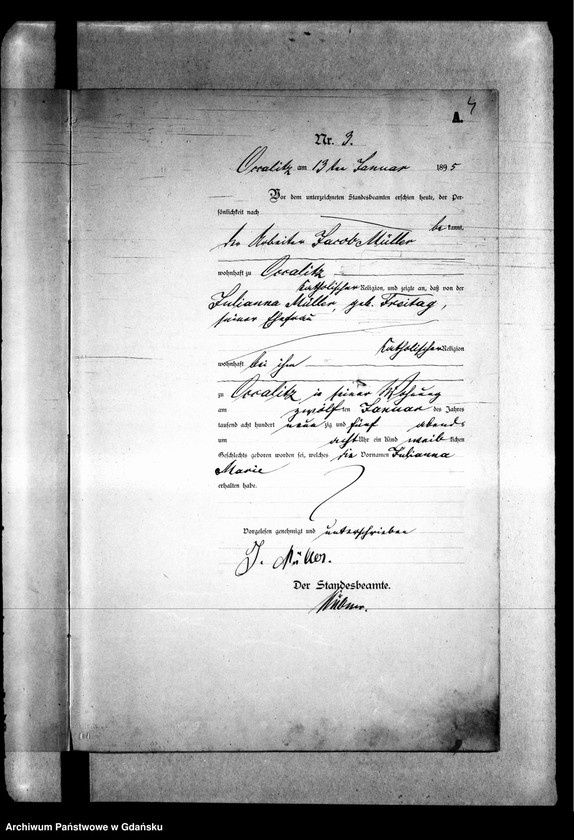 A. 4
Nr. 3.
Occalitz am 13ten Januar 1895
Vor dem unterzeichneten Standesbeamten erschien heute, der Per-
sönlichkeit nach
bekannt,
der Arbeiter Jacob Müller
wohnhaft zu Occalitz
katholischer Religion, und zeigte an, daß von der
Julianna Müller, geb. Freitag,
seiner Ehefrau
katholischer Religion
wohnhaft bei ihm
zu Occalitz in seiner Wohnung
am zwölften Januar des Jahres
tausend acht hundert neunzig und fünf abends
um acht Uhr ein Kind weiblichen
Geschlechts geboren worden sei, welches die Vornamen Julianna
Marie
erhalten habe.
Vorgelesen genehmigt und unterschrieben
J. Müller.
Der Standesbeamte.
Archiwum Państwowe w Gdańsku